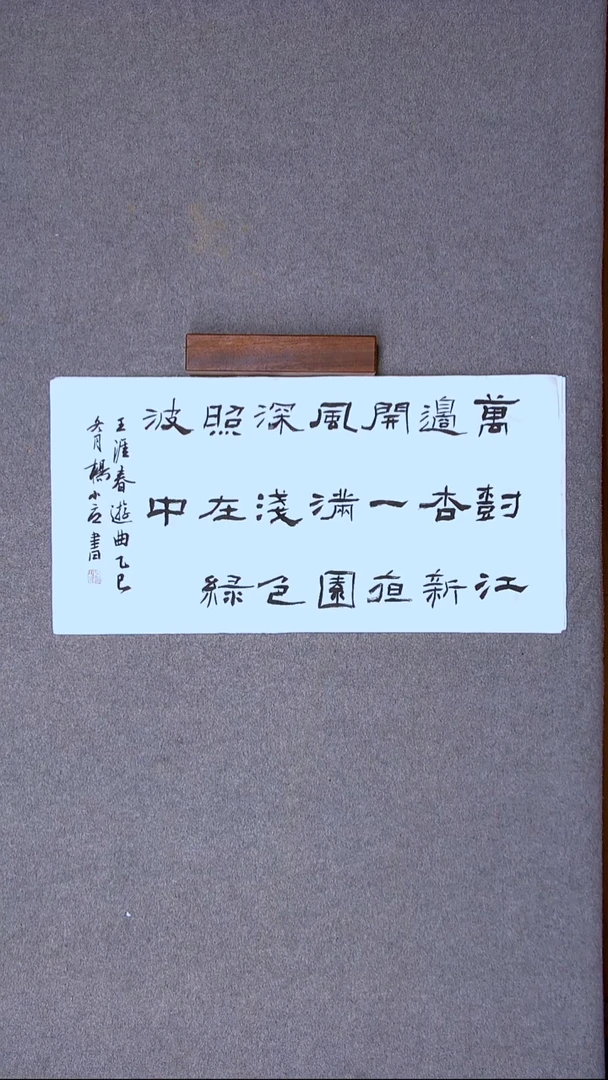 萬樹江
邊杏新
開一夜
風滿園
深淺色
照在綠
波中
王涯春遊曲乙巳
冬月楊小書